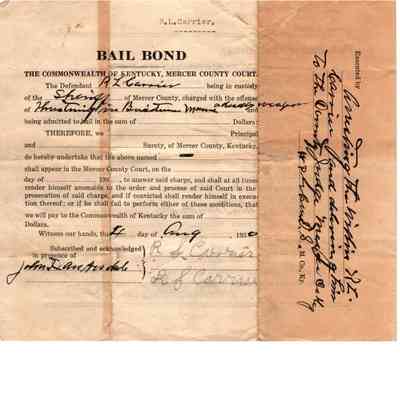 R.L.Carrier.
BAIL BOND
THE COMMONWEALTH OF KENTUCKY, MERCER COUNTY COURT.
The Defendant R L Carrier being in custody
of the Sheriff of Mercer County, charged with the offense
of a deadly weapon and
being admitted to bail in the sum of Dollars:
THEREFORE, we Principal
and Surety, of Mercer County, Kentucky,
do hereby undertake that the above named —
shall appear in the Mercer County Court, on the
day of 19 , to answer said charge, and shall at all times
render himself amenable to the order and process of said Court in the
prosecution of said charge, and if convicted shall render himself in execu-
tion thereof; or if he shall fail to perform either of these conditions, that
we will pay to the Commonwealth of Kentucky the sum of
Dollars.
Witness our hands, this day of Aug 19
Subscribed and acknowledged
in presence of
R L Carrier
L S Carrier
Executed by
Arresting the within R.L.
Carrier and
To the County Judge
M. Co., Ky.